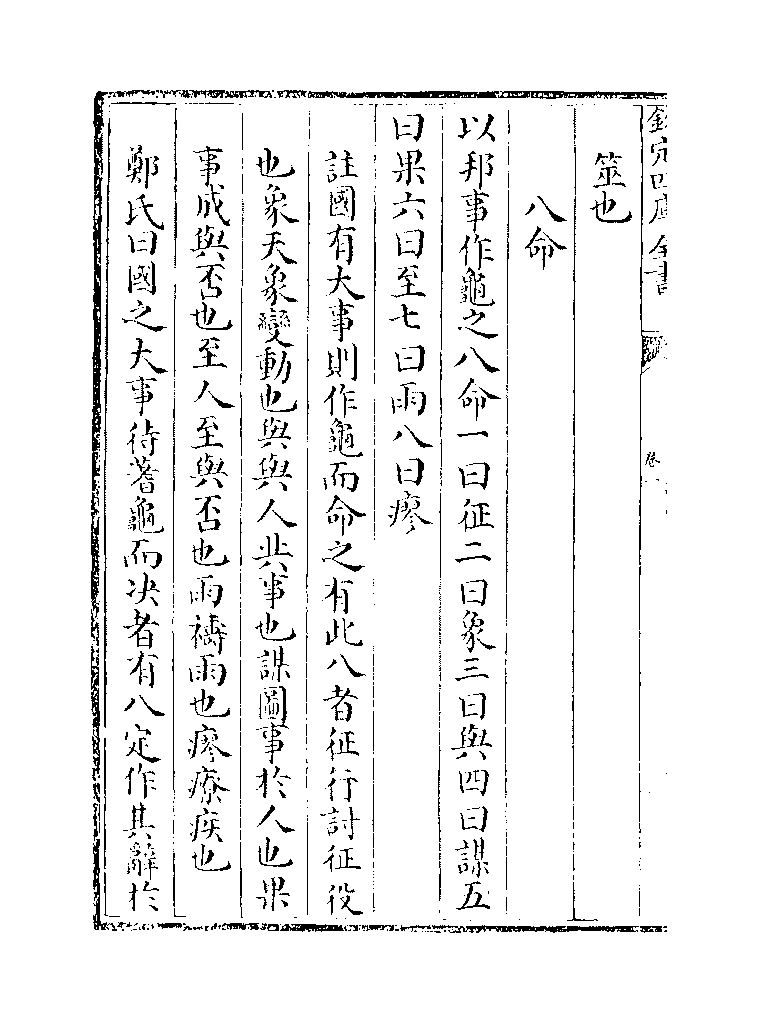 欽定四庫全書
卷一
筮也
八命
以邦事作龜之八命一曰征二曰象三曰與四曰謀五
曰果六曰至七曰雨八曰瘳
註國有大事則作龜而命之有此八者征行討征役
也象天象變動也與與人共事也謀圖事於人也果
事成與否也至人至與否也雨禱雨也瘳療疾也
鄭氏曰國之大事待蓍龜而决者有八定作其辭於